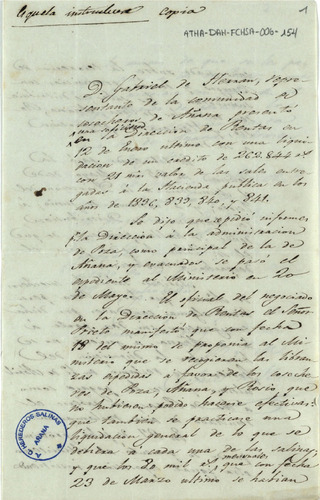 Esquela instructiva Copia
1
ATHA-DAH-FCHSA-006-154
D. Gabriel de Herran, repre-
sentante de la comunidad de
cosecheros de Añana presentó
una solicitud
en la Direccion de Rentas en
12 de Enero ultimo con una liqui-
dacion de un credito de 262.844 rs
con 21 mrs valor de las sales entre-
gadas á la Hacienda publica en los
años de 1836, 839, 840, y 841.
Se dijo que espidió informes
la Direccion á la administracion
de Poza, como principal de la de
Añana, y evacuados se pasó el
espediente al Ministerio en 20
de Mayo. El oficial del negociado
en la Direccion de Rentas el Señor
Prieto manifestó que con fecha
18 del mismo se proponia al Mi-
nisterio que se recogieran las libran-
zas espedidas á favor de los coseche-
ros de Poza, Añana, y Rosio que
no hubieran podido hacerse efectivas:
que tambien se practicase una
liquidacion general de lo que se
debiera á cada una de las salinas,
mensuales
y que los dos mil rs que con fecha
23 de Marzo ultimo se habian
HEREDEROS SALINAS
AÑANA